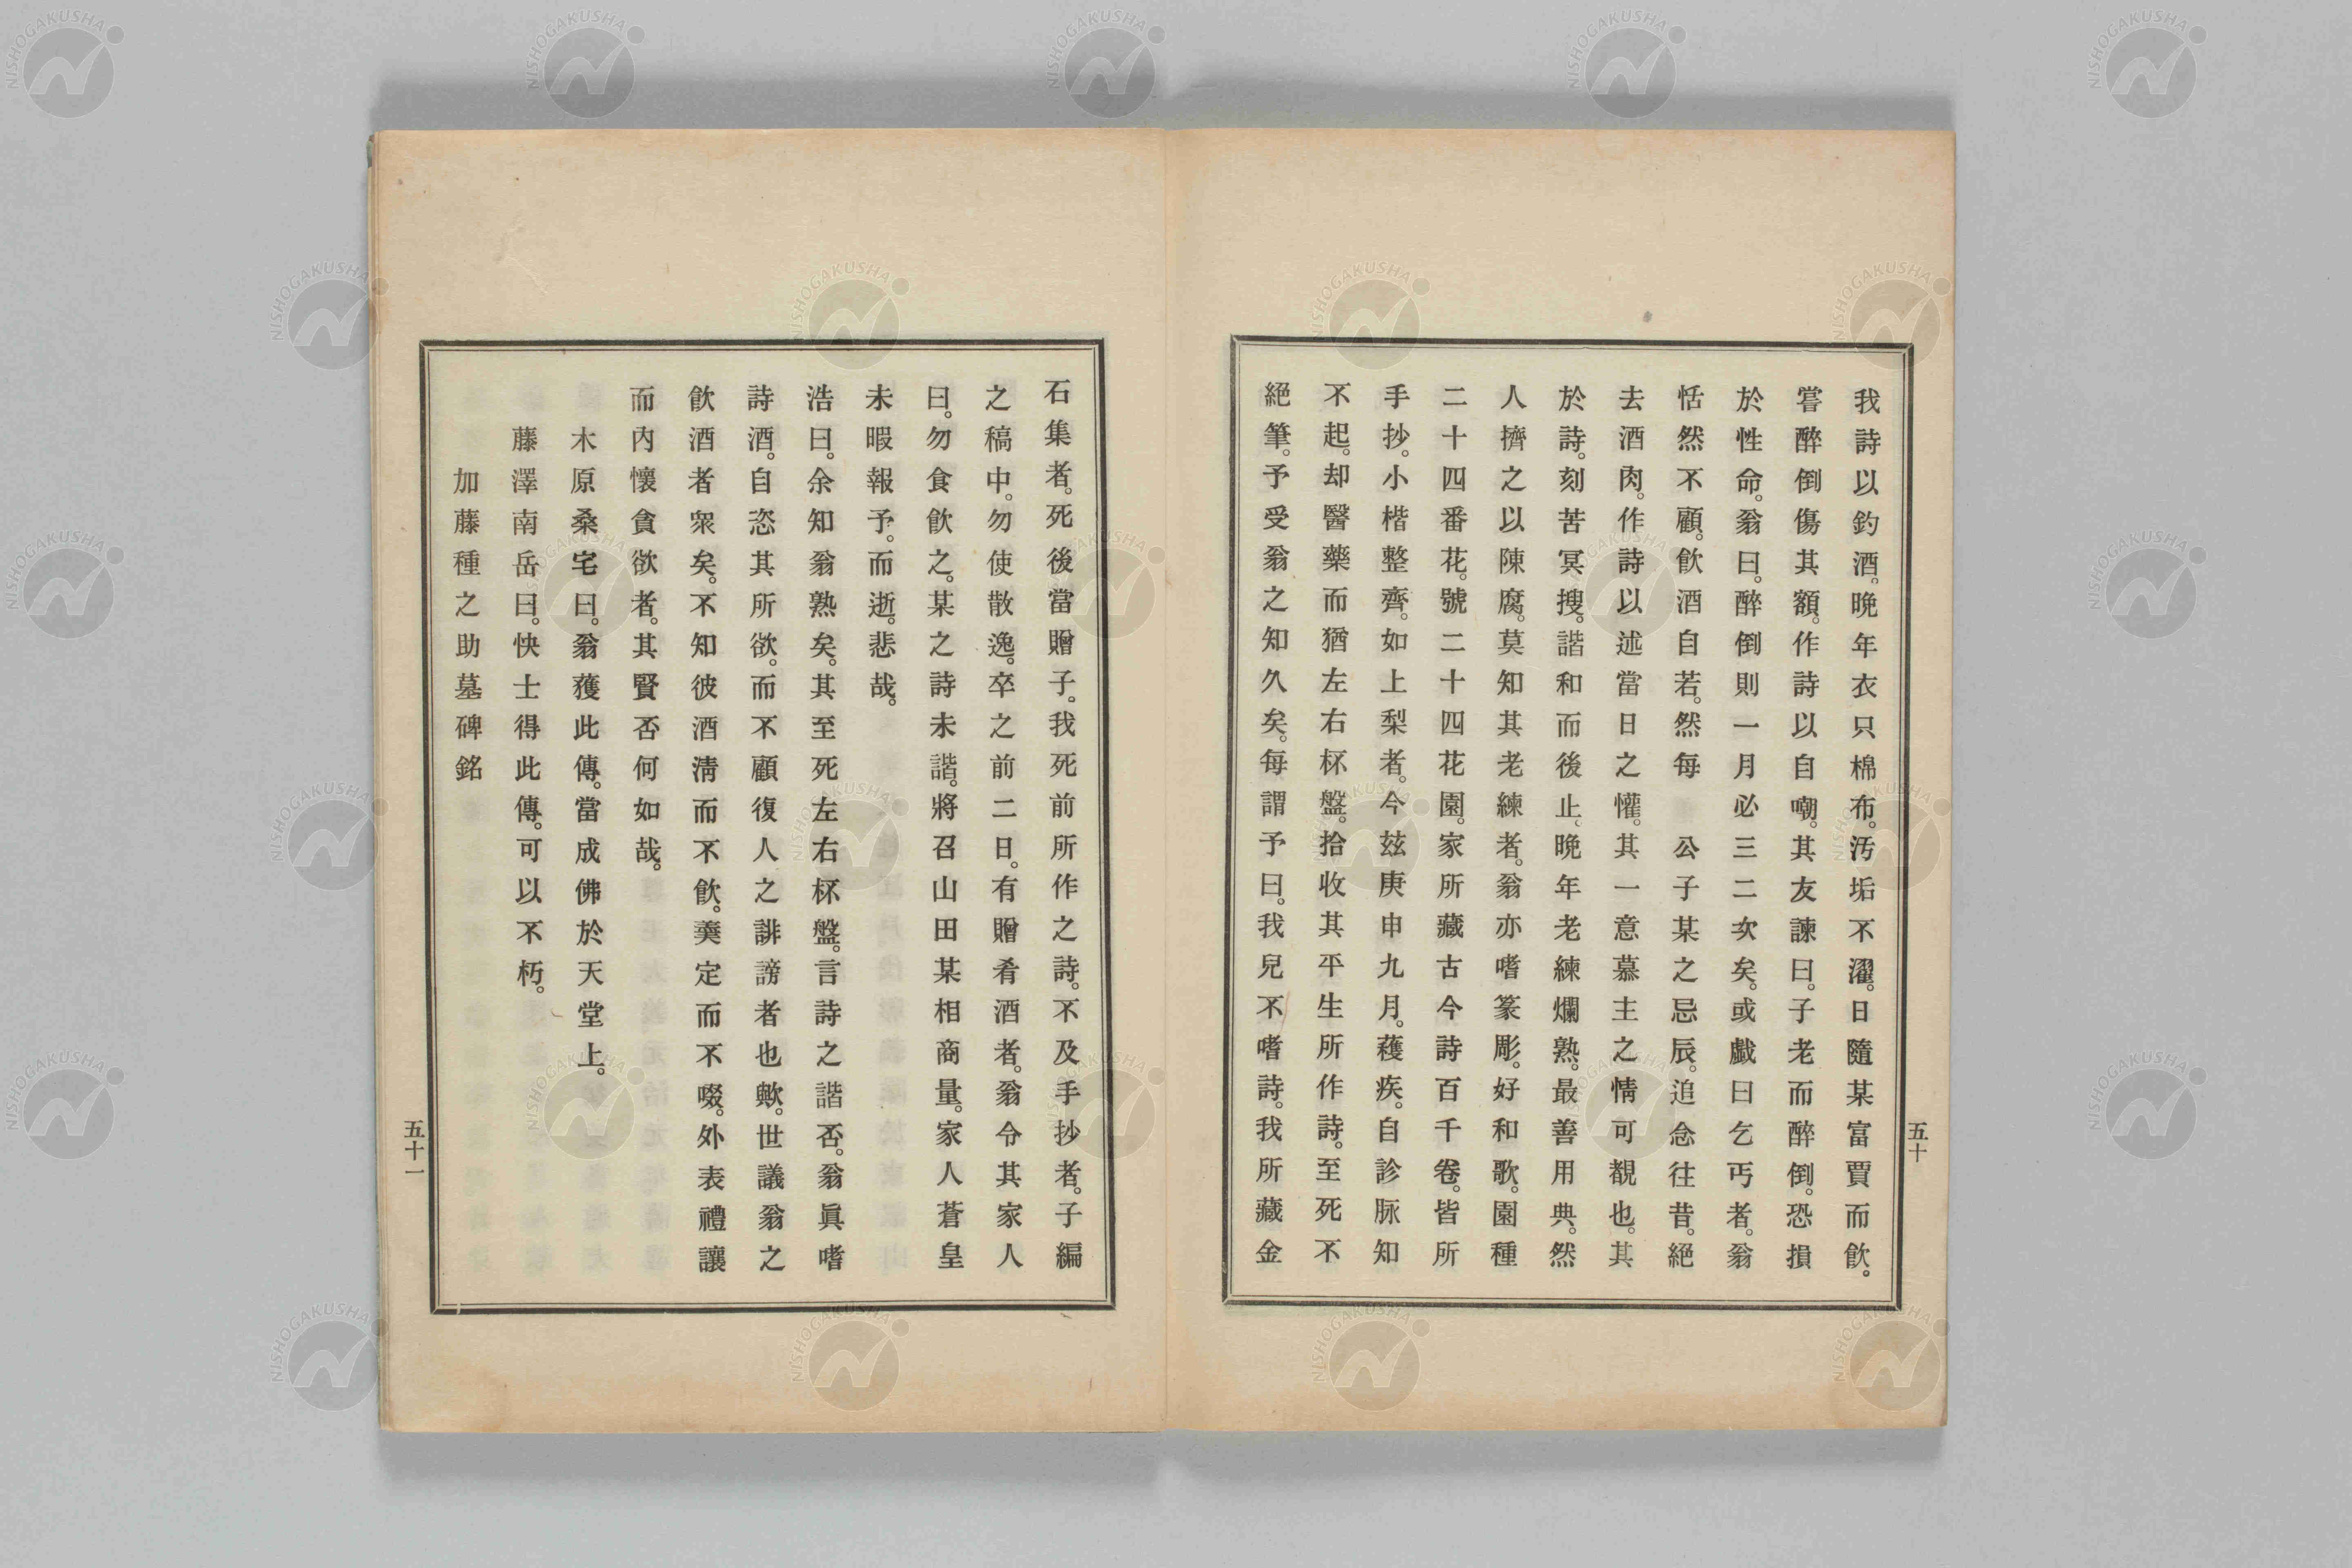 我詩以釣酒。晩年衣只棉布。汚垢不濯。日隨某富賈而飮。
嘗醉倒傷其額。作詩以自嘲。其友諫曰。子老而醉倒。恐損
於性命。翁曰。醉倒則一月必三二次矣。或戲曰乞丐者。翁
恬然不顧。飮酒自若。然每　公子某之忌辰。追念往昔。絕
去酒肉。作詩以述當日之懽。其一意慕主之情可覩也。其
於詩。刻苦冥搜。諧和而後止。晩年老練爛熟。最善用典。然
人擠之以陳腐。莫知其老練者。翁亦嗜篆彫。好和歌。園種
二十四番花。號二十四花園。家所藏古今詩百千卷。皆所
手抄。小楷整齊。如上梨者。今玆庚申九月。䕶疾。自診脈知
不起。却醫藥而猶左右杯盤。拾收其平生所作詩。至死不
絕筆。予受翁之知久矣。每謂予曰。我兒不嗜詩。我所藏金
五十
石集者。死後當贈子。我死前所作之詩。不及手抄者。子編
之稿中。勿使散逸。卒之前二日。有贈肴酒者。翁令其家人
曰。勿食飮之。某之詩未諧。將召山田某相商量。家人蒼皇
未暇報予。而逝。悲哉。
浩曰。余知翁熟矣。其至死左右杯盤。言詩之諧否。翁眞嗜
詩酒。自恣其所欲。而不顧復人之誹謗者也歟。世議翁之
飮酒者衆矣。不知彼酒淸而不飮。羮定而不啜。外表禮讓
而內懷貪欲者。其賢否何如哉。
木原桑宅曰。翁獲此傳。當成佛於天堂上。
藤澤南岳曰。快士得此傳。可以不朽。
加藤種之助墓碑銘
五十一
NISHOGAKUSHA